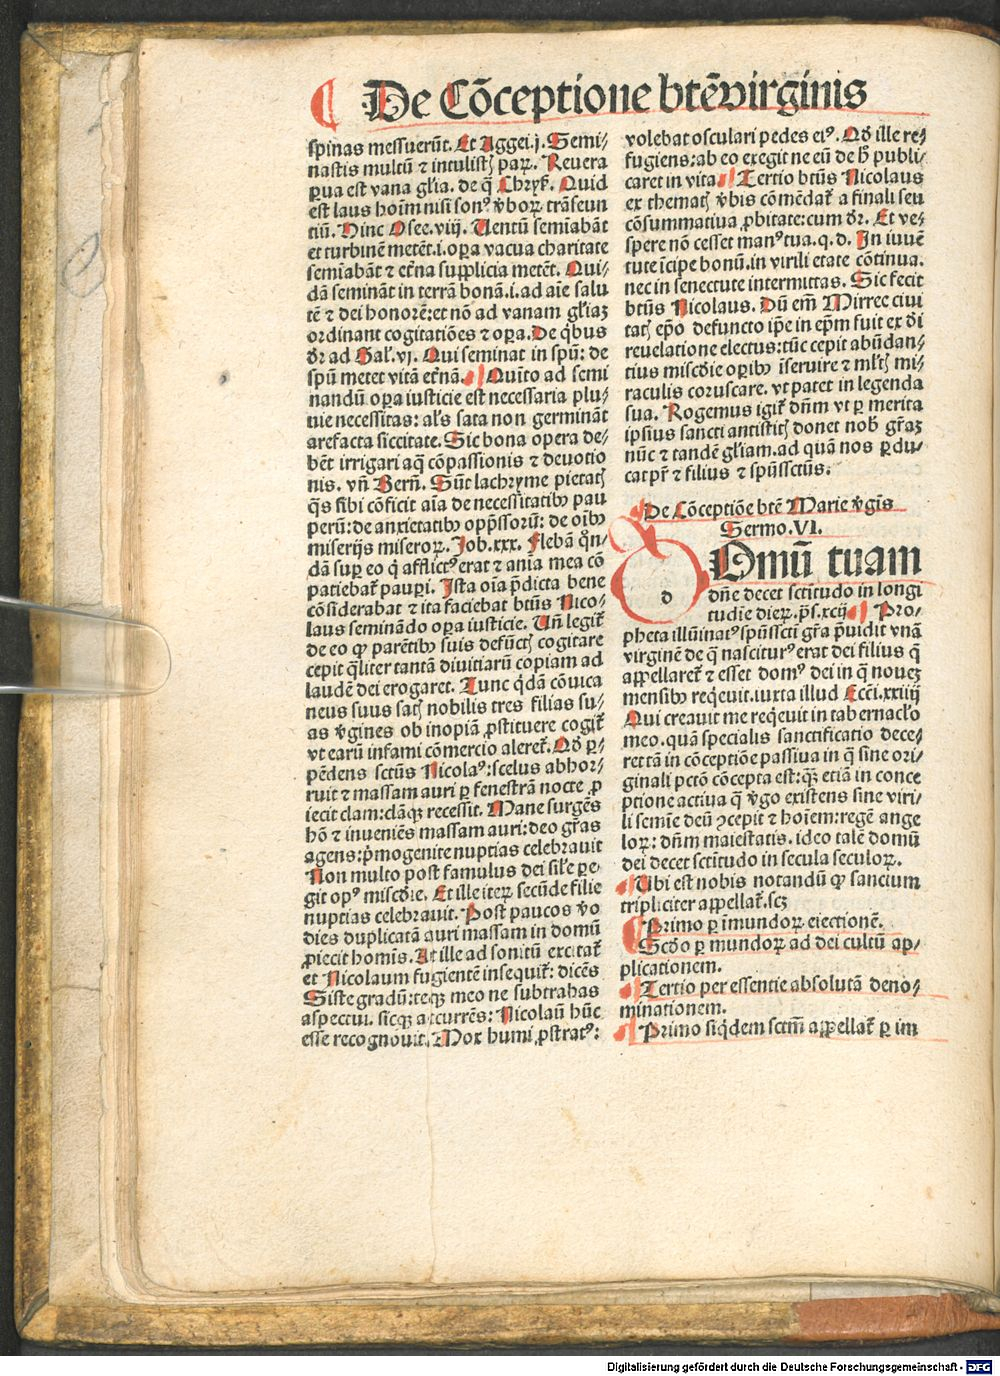 De Cōceptione btē virginis
spinas messuerūt. Et Aggei.j. Semi⸗
nastis multū ⁊ intulistꝭ paꝝ. Reuera
ꝑua est vana gl'ia. de q̄ Chryẜ. Quid
est laus hoīm nisi sonꝰ v̾boꝝ trāseun
tiū. Hinc Osee.viij. Uentū semiabāt
et turbinē metēt.i.oꝑa vacua charitate
semīabāt ⁊ et̾na suꝑplicia metēt. Qui⸗
dā semināt in terrā bonā.i.ad aīe salu
tē ⁊ dei honorē:et nō ad vanam gl'iaꝫ
ordinant cogitatiōes ⁊ oꝑa. De qͥbus
dr̄ ad Gal'.vj. Qui seminat in spū: de
spū metet vitā et̾nā. Quīto ad semi
nandū oꝑa iusticie est necessaria plu⸗
uie necessitas: al's sata non germināt
arefacta siccitate. Sic bona opera de⸗
bēt irrigari aq̄ cōpassionis ⁊ deuotio
nis. vn̄ Bern̄. Sūt lachryme pietatꝭ
q̄s sibi cōficit aīa de necessitatibꝰ pau
perū: de anxietatibꝰ opp̄ssorū: de oībꝰ
miserijs miseroꝝ. Job.xxx. Flebā qn̄⸗
dā suꝑ eo q̇ afflictꝰ erat ⁊ anīa mea cō
patiebat̾ pauꝑi. Ista oīa p̄dicta bene
cōsiderabat ⁊ ita faciebat btūs Nico⸗
laus semināndo oꝑa iusticie. Un̄ legit̾
de eo ꝙ parētibꝰ suis defūctꝭ cogitare
cepit qͣliter tantā diuitiarū copiam ad
laudē dei erogaret. Tunc qͥdā cōuica
neus suus satꝭ nobilis tres filias su⸗
as v̾gines ob inopiā ꝓstituere cogit̾
vt earū infami cōmercio aleret̾. Qd̾ ꝑ⸗
pēdens sctūs Nicolaꝰ:scelus abhor⸗
ruit ⁊ massam auri ꝑ fenestrā nocte ꝓ
iecit clam:clāqꝫ recessit. Mane surgēs
hō ⁊ inueniēs massam auri:deo gr̄as
agens:pͥmogenite nuptias celebrauit
Non multo post famulus dei sil'e ꝑe⸗
git opꝰ misc̄die. Et ille iteꝝ secūde filie
nuptias celebrauit. Post paucos v̾o
dies duplicatā auri massam in domū
ꝓiecit homīs. At ille ad sonitū excitat̾
et Nicolaum fugientē insequit̾: dicēs
Siste gradū:teqꝫ meo ne subtrahas
aspectui. sicqꝫ accurrēs: Nicolaū hūc
esse recognouit. Mox humi ꝓstratꝰ:
volebat osculari pedes eiꝰ. Qd̾ ille re⸗
fugiens:ab eo exegit ne eū de h̾ publi⸗
caret in vita Tertio btūs Nicolaus
ex thematꝭ v̾bis cōmēdat̾ a finali seu
cōsummatiua ꝓbitate:cum dr̄. Et ve⸗
spere nō cesset manꝰ tua.q.d. In iuuē
tute īcipe bonū.in virili etate cōtinua.
nec in senectute intermittas. Sic fecit
btūs Nicolaus. Dū em̄ Mirree ciui
tatꝭ ep̄o defuncto ip̄e in ep̄m fuit ex d̾i
reuelatione electus:tūc cepit abūdan⸗
tius misc̄die oꝑibꝰ īseruire ⁊ ml'tꝭ mi⸗
raculis coruscare. vt patet in legenda
sua. Rogemus igit̾ dn̄m vt ꝑ merita
ipsius sancti antistitꝭ donet nob̾ gr̄aꝫ
nūc ⁊ tandē gl'iam.ad quā nos ꝑdu⸗
cat pr̄ ⁊ filius ⁊ spūssctūs:
De Cōceptiōe btē Marie v̾gīs
Sermo.VI.
Domū tuam
d
dn̄e decet sctītudo in longi
tudīe dieꝝ.ps̄.xcij Pro⸗
pheta illūinatꝰ spūsscti gr̄a p̄uidit vnā
virginē de q̄ nasciturꝰ erat dei filius q̄
aꝑpellaret̾ ⁊ esset domꝰ dei in q̄ noueꝫ
mensibꝰ reqͥeuit.iuxta illud Ecc̄i.xxiiij
Qui creauit me reqͥeuit in tabernacl'o
meo.quā specialis sanctificatio dece⸗
ret tā in cōceptiōe passiua in q̄ sine ori⸗
ginali pctō cōcepta est:qꝫ etiā in conce
ptione actiua q̄ v̾go existens sine viri⸗
li semīe deū ↄcepit ⁊ hoīem:regē ange
loꝝ: dn̄m maiestatis. ideo talē domū
dei decet sctītudo in secula seculoꝝ.
Ubi est nobis notandū ꝙ sancium
tripliciter aꝑpellat̾.scꝫ
Primo ꝑ īmundoꝝ eiectionē.
Scd̾o ꝑ mundoꝝ ad dei cultū aꝑ⸗
plicationem.
Tertio per essentie absolutā deno⸗
minationem.
Primo siqͥdem sctm̄ aꝑpellat̾ ꝑ im
Digitalisierung gefördert durch die Deutsche Forschungsgemeinschaft - DFG